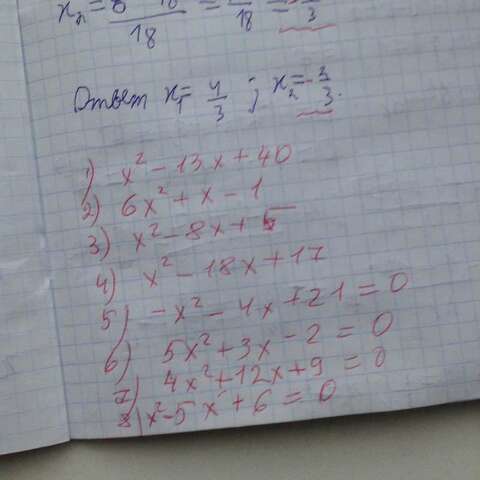 x₂ = 8 - 10 / 18 = / 18 = / 3
Ответ x₁ = 4/3 ; x₂ = -2/3.
1) x² - 13x + 40
2) 6x² + x - 1
3) x² - 8x + 5
4) x² - 18x + 17
5) -x² - 4x + 21 = 0
6) 5x² + 3x - 2 = 0
7) 4x² + 12x + 9 = 0
8) x² - 5x + 6 = 0